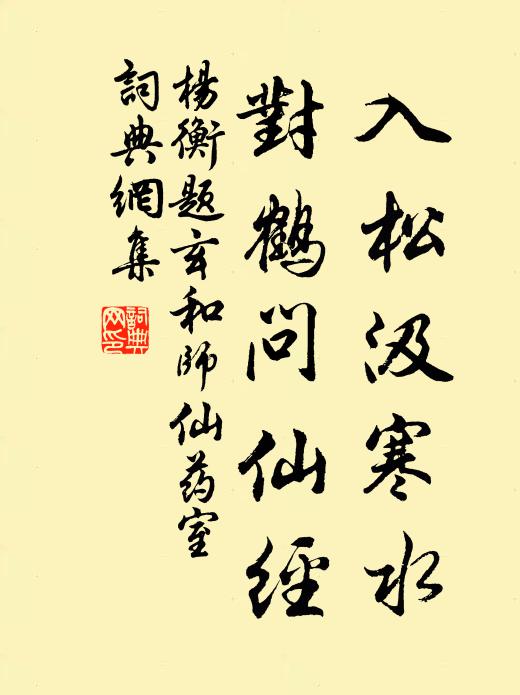 入松汲寒水
對鶴問仙經
楊衡题玄和師仙药室
詞典網集
詞典网印